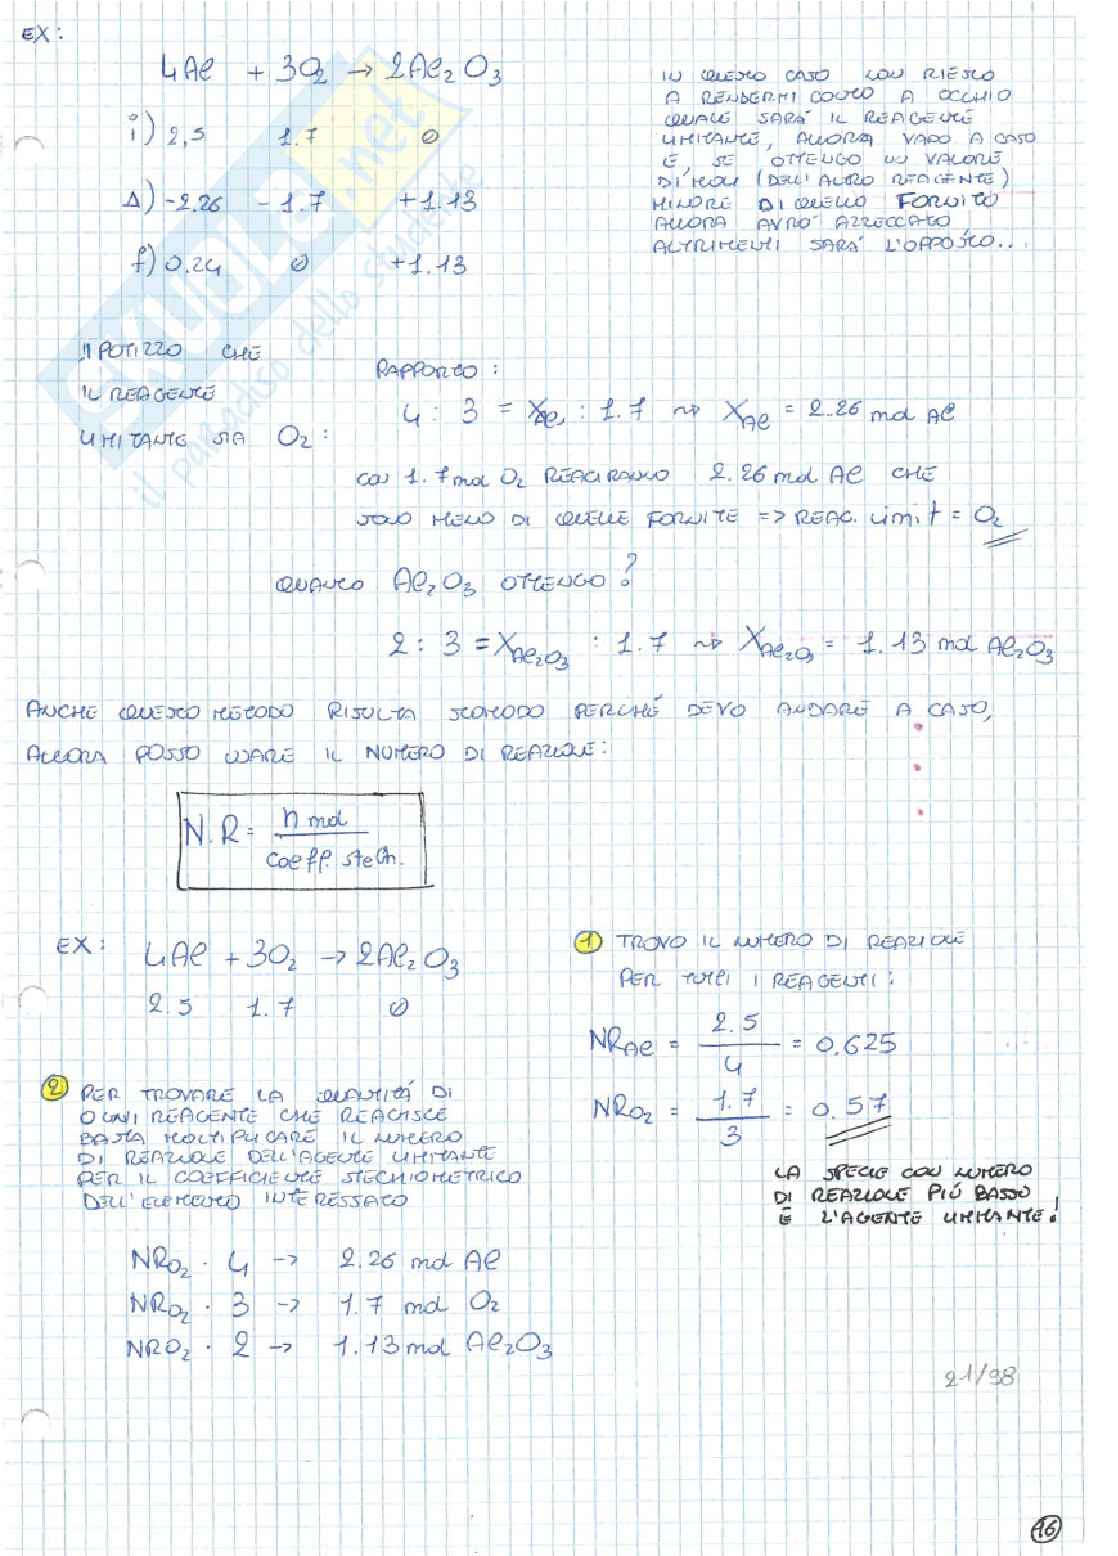 EX:
4Al + 3O₂ → 2Al₂O₃
i) 2,5 1.7 0
Δ) -2.26 -1.7 +1.13
f) 0.24 0 +1.13
IN QUESTO CASO NON RIESCO
A RENDERMI CONTO A OCCHIO
QUALE SARÀ IL REAGENTE
LIMITANTE, ALLORA VADO A CASO
E, SE OTTENGO UN VALORE
DI MOLI (DELL'ALTRO REAGENTE)
MINORE DI QUELLO FORNITO
ALLORA AVRÒ AZZECCATO
ALTRIMENTI SARÀ L'OPPOSTO..
IPOTIZZO CHE
IL REAGENTE
LIMITANTE SIA O₂:
RAPPORTO:
4 : 3 = X_Al : 1.7 ⇝ X_Al = 2.26 mol Al
CON 1.7 mol O₂ REAGIRANNO 2.26 mol Al CHE
SONO MENO DI QUELLE FORNITE => REAG. Limit = O₂
QUANTO Al₂O₃ OTTENGO?
2 : 3 = X_Al₂O₃ : 1.7 ⇝ X_Al₂O₃ = 1.13 mol Al₂O₃
ANCHE QUESTO METODO RISULTA SCOMODO PERCHÉ DEVO ANDARE A CASO,
ALLORA POSSO USARE IL NUMERO DI REAZIONE:
N.R = n mol / coeff. stech.
EX: 4Al + 3O₂ → 2Al₂O₃
2.5 1.7 0
1 TROVO IL NUMERO DI REAZIONE
PER TUTTI I REAGENTI:
NR_Al = 2.5 / 4 = 0.625
NR_O₂ = 1.7 / 3 = 0.57
LA SPECIE CON NUMERO
DI REAZIONE PIÚ BASSO
È L'AGENTE LIMITANTE!
2 PER TROVARE LA QUANTITÁ DI
OGNI REAGENTE CHE REAGISCE
BASTA MOLTIPLICARE IL NUMERO
DI REAZIONE DELL'AGENTE LIMITANTE
PER IL COEFFICIENTE STECHIOMETRICO
DELL'ELEMENTO INTERESSATO
NR_O₂ · 4 → 2.26 mol Al
NR_O₂ · 3 → 1.7 mol O₂
NR_O₂ · 2 → 1.13 mol Al₂O₃
21/98
16
SKUOLA.net
il paradiso dello studente